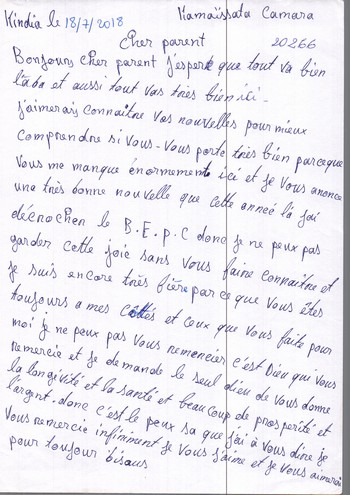 Kindia le 18/7/2018 Mamaïssata Camara
Cher parent 20266
Bonjours cher parent j'espere que tout va bien
laba et aussi tout vas très bien ici.
j'aimerais connaitre vos nouvelles pour mieux
comprendre si vous-vous porte très bien parceque
vous me manque énormement ici et je vous anonce
une très bonne nouvelle que cette anneé là j'ai
décrocher le B.E.P.C donc je ne peux pas
garder cette joie sans vous faire connaitre et
je suis encore très fière parce que vous êtes
toujours a mes côtés et ceux que vous faite pour
moi je ne peux pas vous remercier c'est Dieu qui vous
remercie et je demande le seul dieu de vous donne
la longivité et la santé et beaucoup de prosperité et
l'argent. donc c'est le peux sa que j'ai à vous dire je
vous remercie infiniment je vous j'aime et je vous aimerai
pour toujour bisous